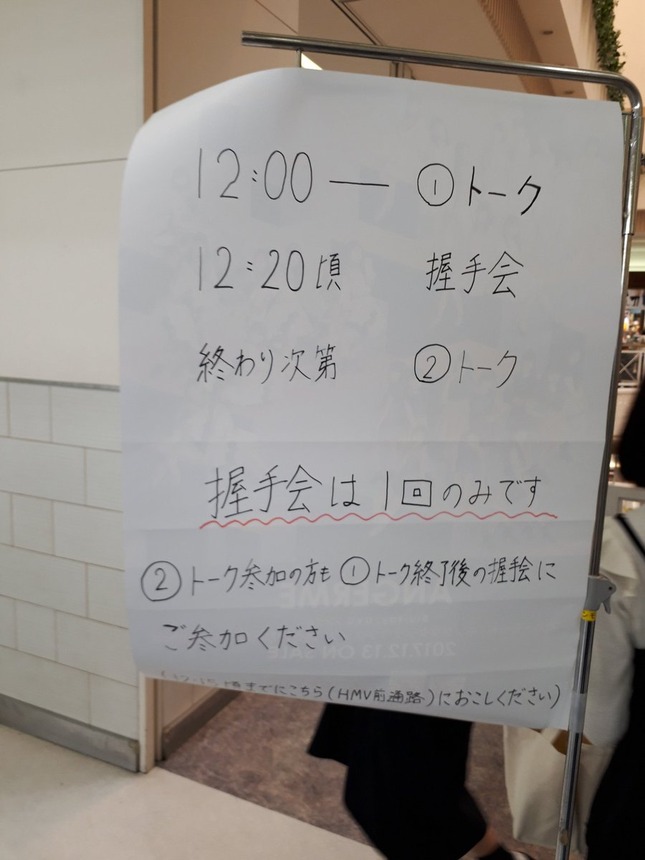 12:00 — ①トーク
12:20頃 握手会
終わり次第 ②トーク
握手会は1回のみです
②トーク参加の方も①トーク終了後の握手会に
ご参加ください
頃までにこちら(HMV前通路)におこしください)
ANGERME
2017.12.13 ON SALE